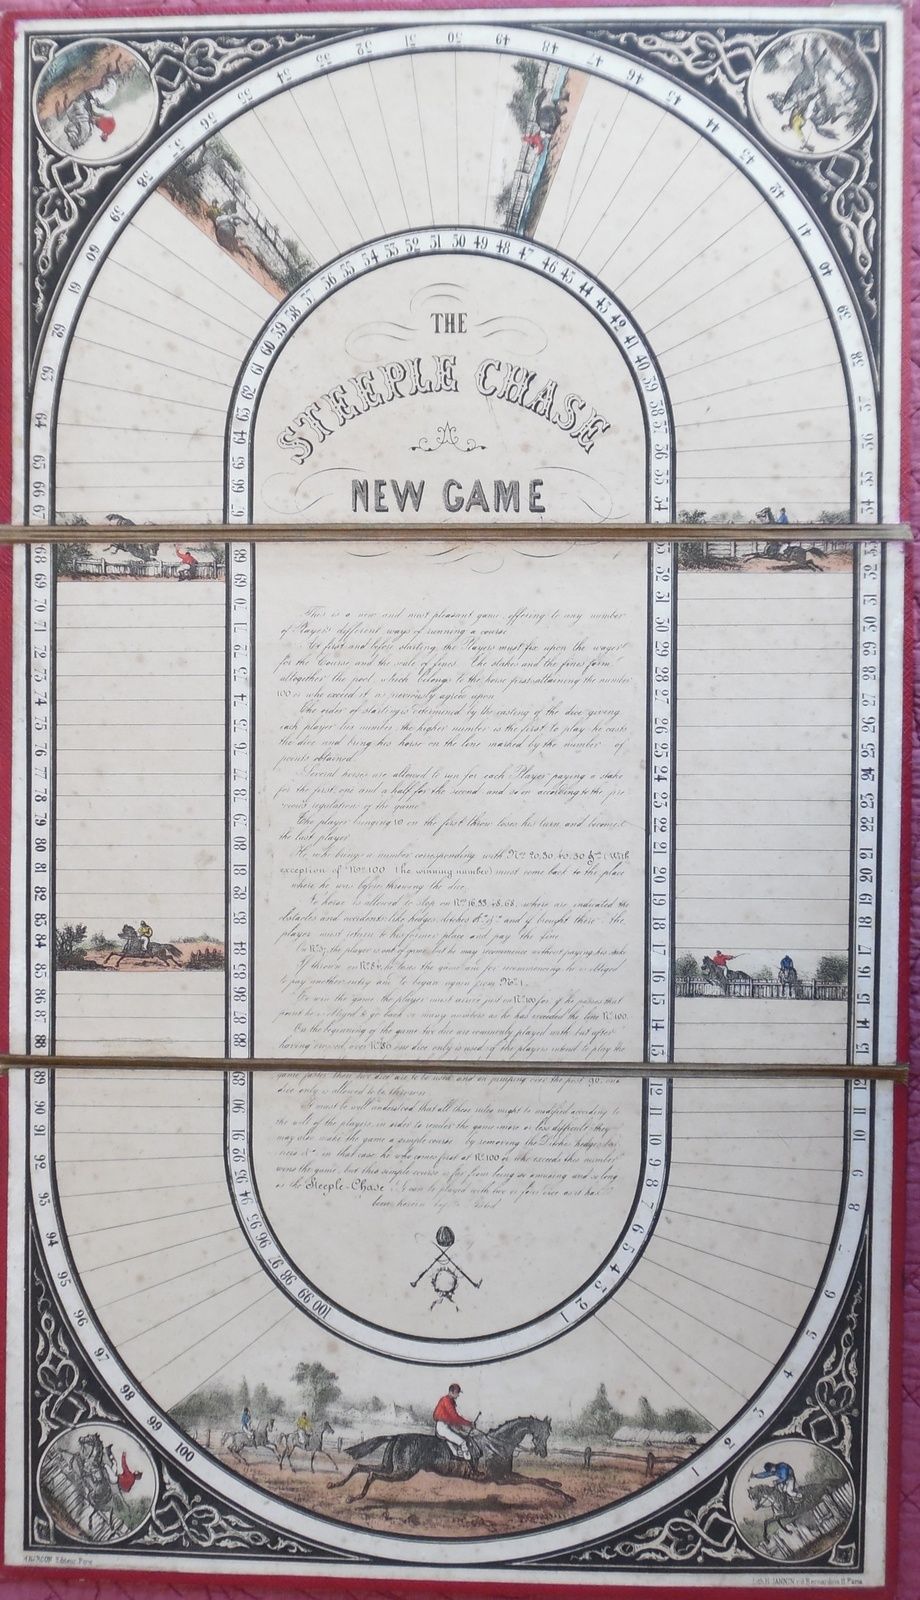 THE
STEEPLE CHASE
A
NEW GAME
This is a new and most pleasant game offering to any number
of Players different ways of running a course
At first and before starting, the Players must fix upon the wager
for the Course and the scale of fines. The stakes and the fines form
altogether the pool which belongs to the horse first attaining the number
100 or who exceed it as previously agreed upon
The order of starting is determined by the casting of the dice giving
each player his number the higher number is the first to play he casts
the dice and bring his horse on the line marked by the number of
points obtained.
Several horses are allowed to run for each Player paying a stake
for the first, one and a half for the second and so on according to the pre
vious regulation of the game
The player bringing 10 on the first throw loses his turn and becomes
the last player
He who brings a number corresponding with Nos 20, 30, 40, 50 &a (With
exception of No 100 the winning number) must come back to the place
where he was before throwing the dice,
No horse is allowed to stop on Nos 16, 33, 48, 68, where are indicated the
obstacles and accidents like hedges ditches &a &a and if brought there the
player must return to his former place and pay the fine
On No 57 the player is out of game but he may recommence without paying his stake
If thrown on No 84 he loses the game and for recommencing he is obliged
to pay another entry and to began again from No 1.
To win the game the player must arrive just on No 100 for if he passes that
point he is obliged to go back as many numbers as he has exceeded the line No 100.
On the beginning of the game two dice are commonly played with but after
having crossed over No 80 one dice only is used if the players intend to play the
game faster then two dice are to be used and on jumping over the post 90 one
dice only is allowed to be thrown
It must be well understood that all these rules might be modified according to
the will of the players in order to render the game more or less difficult they
may also make the game a simple course by removing the Ditches hedges bar
riers &a in that case he who comes first at No 100 or who exceeds this number
wins the game, but this simple course is far from being so amusing and so long
as the Steeple-Chase
been herein
1 2 3 4 5 6 7 8 9 10 11 12 13 14 15 16 17 18 19 20 21 22 23 24 25 26 27 28 29 30 31 32 33 34 35 36 37 38 39 40 41 42 43 44 45 46 47 48 49 50 51 52 53 54 55 56 57 58 59 60 61 62 63 64 65 66 67 68 69 70 71 72 73 74 75 76 77 78 79 80 81 82 83 84 85 86 87 88 89 90 91 92 93 94 95 96 97 98 99 100
1 2 3 4 5 6 7 8 9 10 11 12 13 14 15 16 17 18 19 20 21 22 23 24 25 26 27 28 29 30 31 32 33 34 35 36 37 38 39 40 41 42 43 44 45 46 47 48 49 50 51 52 53 54 55 56 57 58 59 60 61 62 63 64 65 66 67 68 69 70 71 72 73 74 75 76 77 78 79 80 81 82 83 84 85 86 87 88 89 90 91 92 93 94 95 96 97 98 99 100
Editeur Paris
Lith H. JANNIN Bernardins Paris